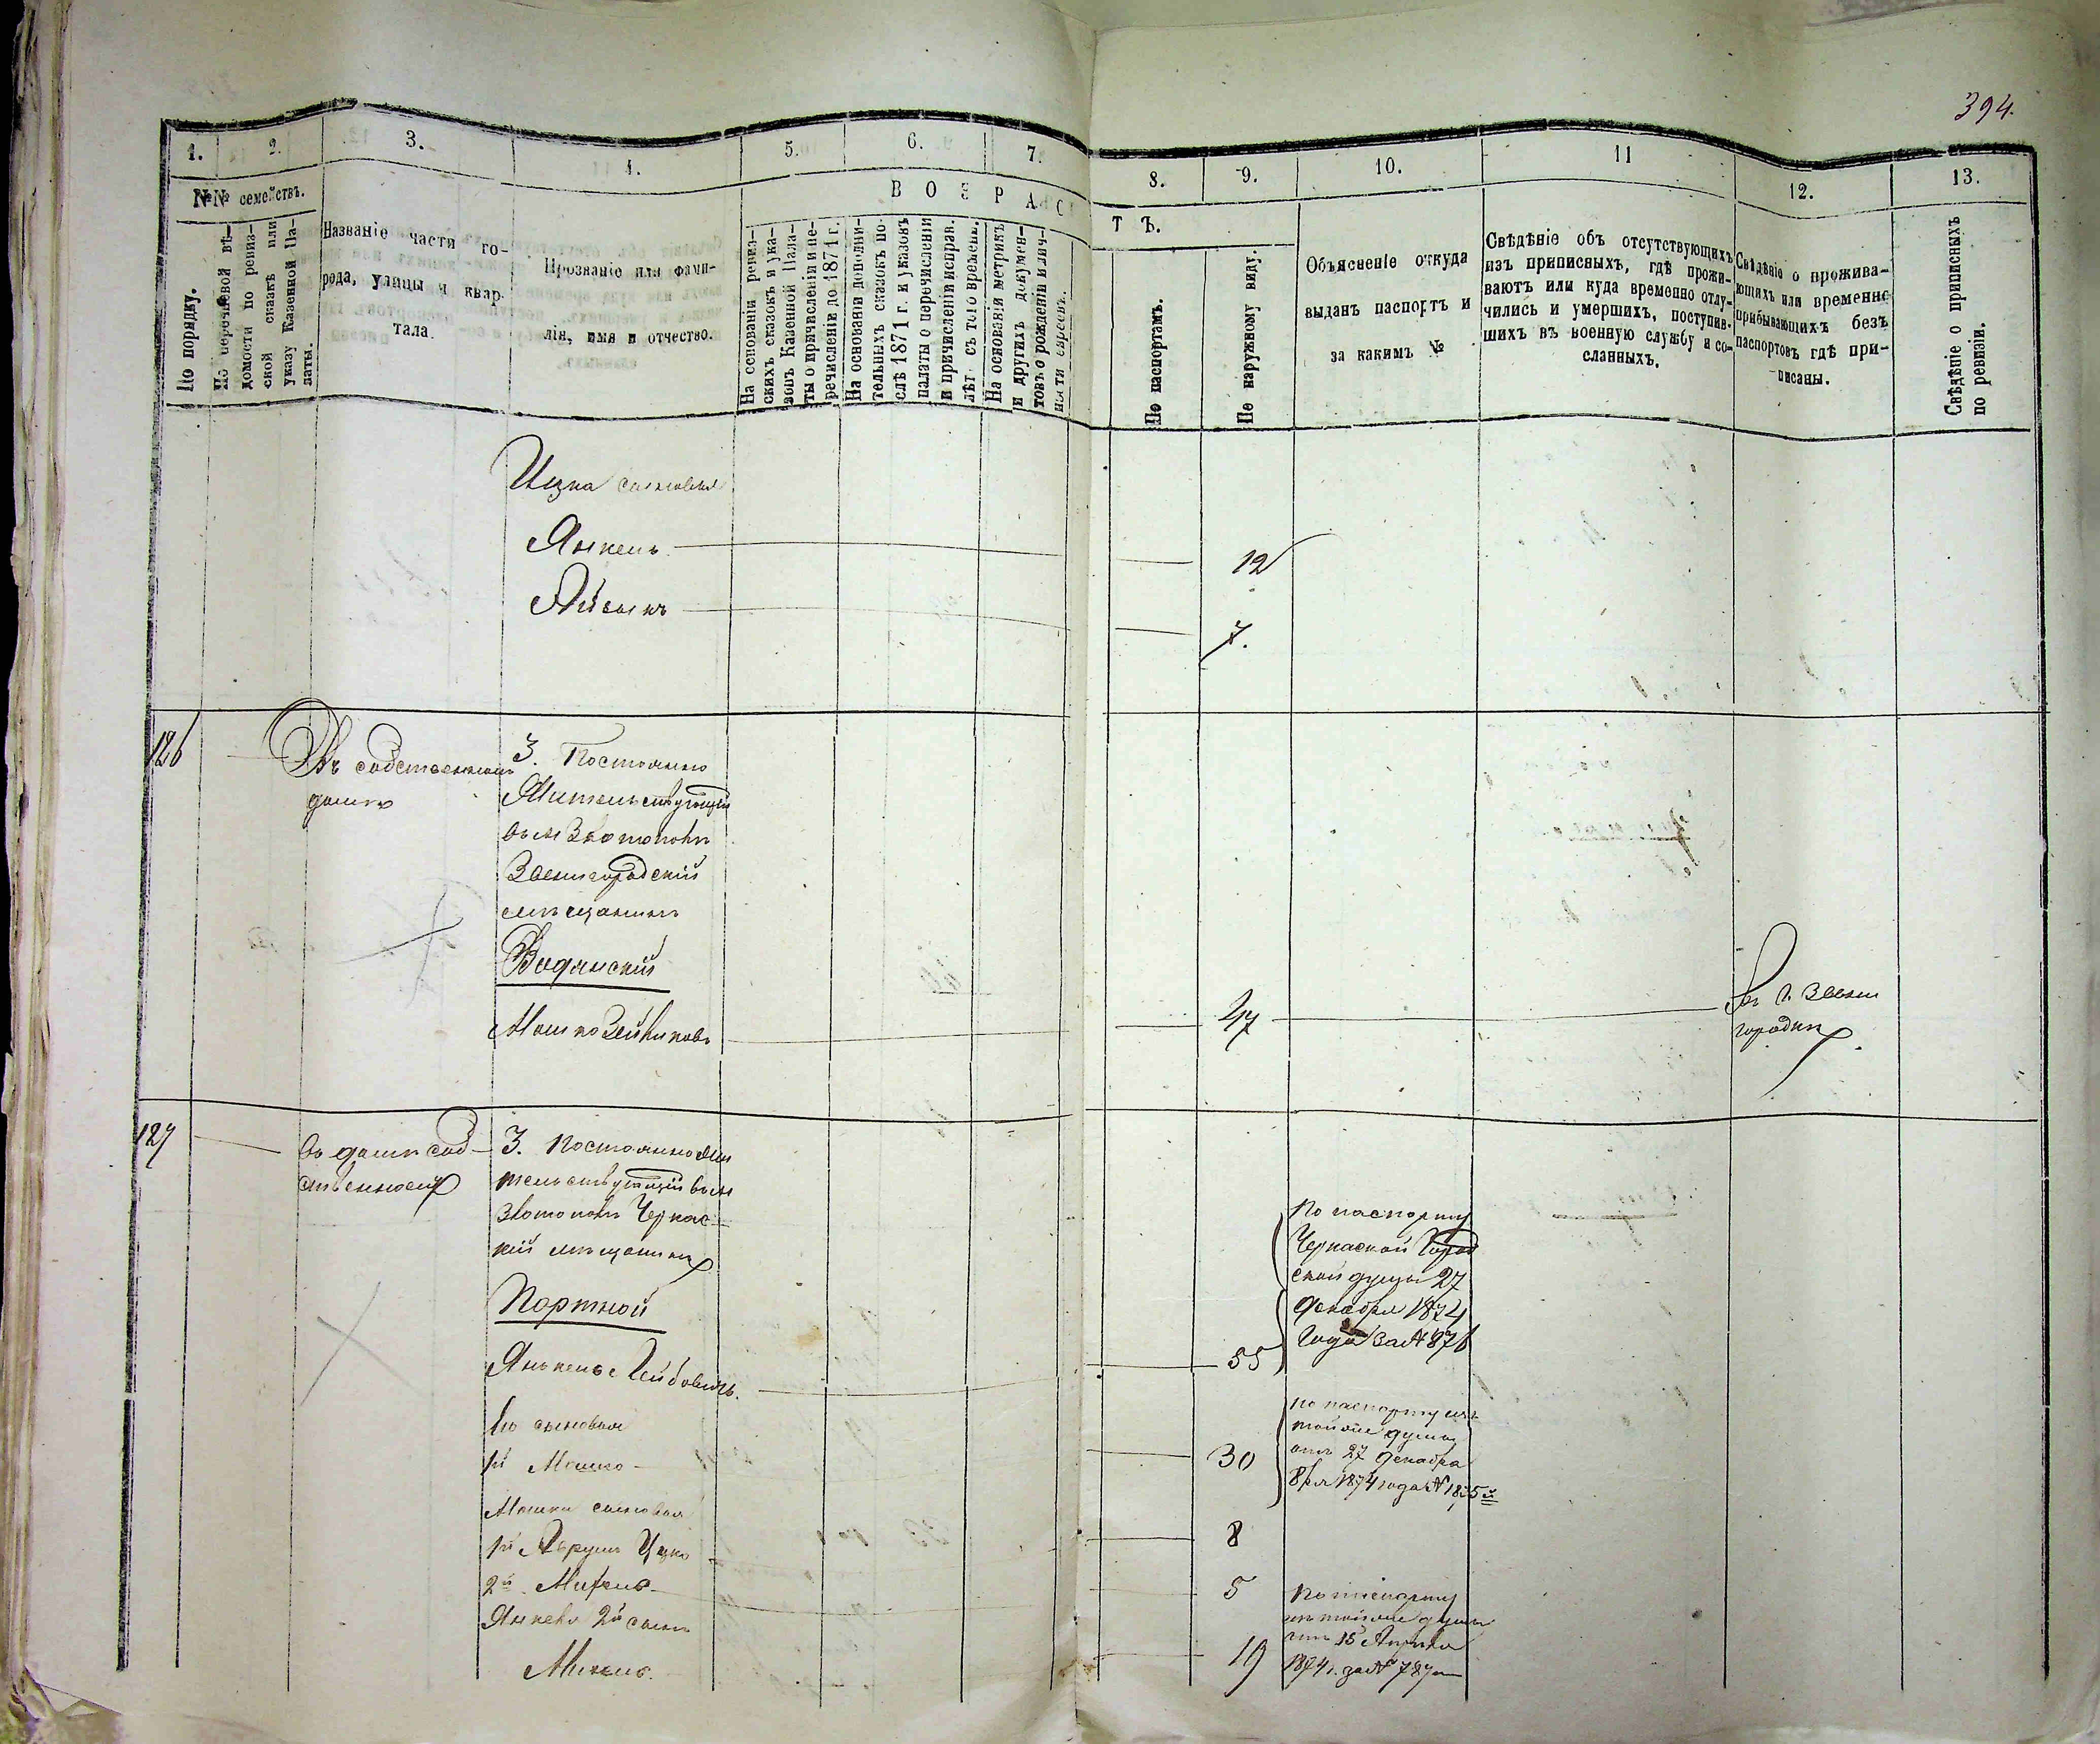 394.
1.
2.
3.
4.
5.
6.
7.
8.
9.
10.
11
12.
13.
№№ семействъ.
По порядку.
По перечневой вѣ-
домости по ревиз-
ской сказкѣ или
указу Казенной Па-
латы.
Названіе части го-
рода, улицы и квар-
тала.
Прозваніе или фами-
лія, имя и отчество.
ВОЗРАС
ТЪ.
На основаніи ревиз-
скихъ сказокъ и ука-
зовъ Казенной Пала-
ты о причисленіи и пе-
речисленіе до 1871 г.
На основаніи дополни-
тельныхъ сказокъ по-
слѣ 1871 г. и указовъ
палаты о перечисленіи
и причисленіи исправ.
лѣт съ того времени.
На основаніи метрикъ
и другихъ докумен-
товъ о рожденіи и лич-
ности евреевъ.
По паспортамъ.
По наружному виду.
Объясненіе откуда
выданъ паспортъ и
за какимъ №
Свѣдѣніе объ отсутствующихъ
изъ приписныхъ, гдѣ прожи-
ваютъ или куда временно отлу-
чились и умершихъ, поступив-
шихъ въ военную службу и со-
сланныхъ.
Свѣдѣніе о прожива-
ющихъ или временно
прибывающихъ безъ
паспортовъ гдѣ при-
писаны.
Свѣдѣніе о приписныхъ
по ревизіи.
Ицка сыновья
Янкель 12
7.
126
Въ собственномъ
домѣ
3. Постоянно
Жительствующій
въ м Златополѣ
Звенигородскій
мѣщанинъ
Водянскій
Мошко Зейликовъ 47
въ г. Звени
городкѣ
127
въ домѣ соб-
ственному
3. Постоянно жи
тельствующій въ м
Златополѣ Черкас-
кій мѣщанинъ
Портной
Янкель Лейбовичъ. 55
По паспорту
Черкаской Город
ской думы 27
декабря 1874
года за № 876
Его сыновья
1й Мошко 30
по паспорту изъ
той же думы
отъ 27 декабра
1874 года №
Мошки сыновья
1й Ицко 8
2й 5
Янкеля 2й сынъ
19
По паспорту
изъ той же думы
отъ 15 Апрѣля
1874 г. за № 787